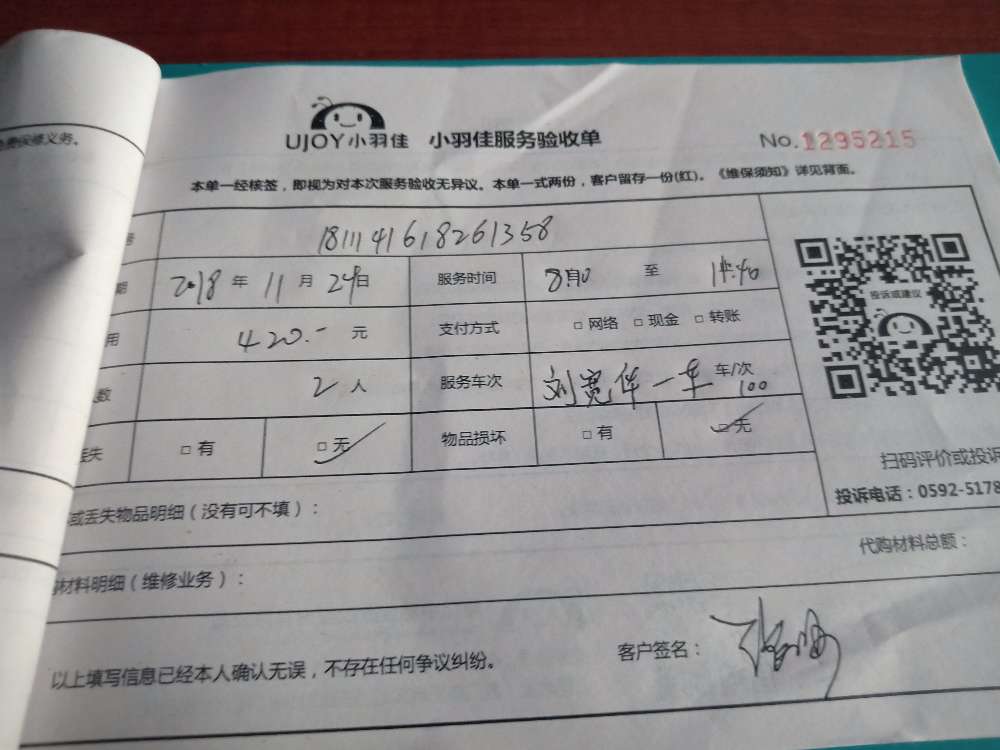 修义务。
UJOY小羽佳 小羽佳服务验收单 No.1295215
本单一经核签，即视为对本次服务验收无异议。本单一式两份，客户留存一份(红)。《维保须知》详见背面。
号 1811141618261358
期 2018 年 11 月 24日 服务时间 至
用 420.- 元 支付方式 □ 网络 □ 现金 □ 转账
人数 2 人 服务车次 一车 车/次 100
丢失 □ 有 □ 无 物品损坏 □ 有 □ 无
投诉或建议
扫码评价或投诉
投诉电话：0592-5178
或丢失物品明细（没有可不填）：
代购材料总额：
材料明细（维修业务）：
以上填写信息已经本人确认无误，不存在任何争议纠纷。 客户签名：